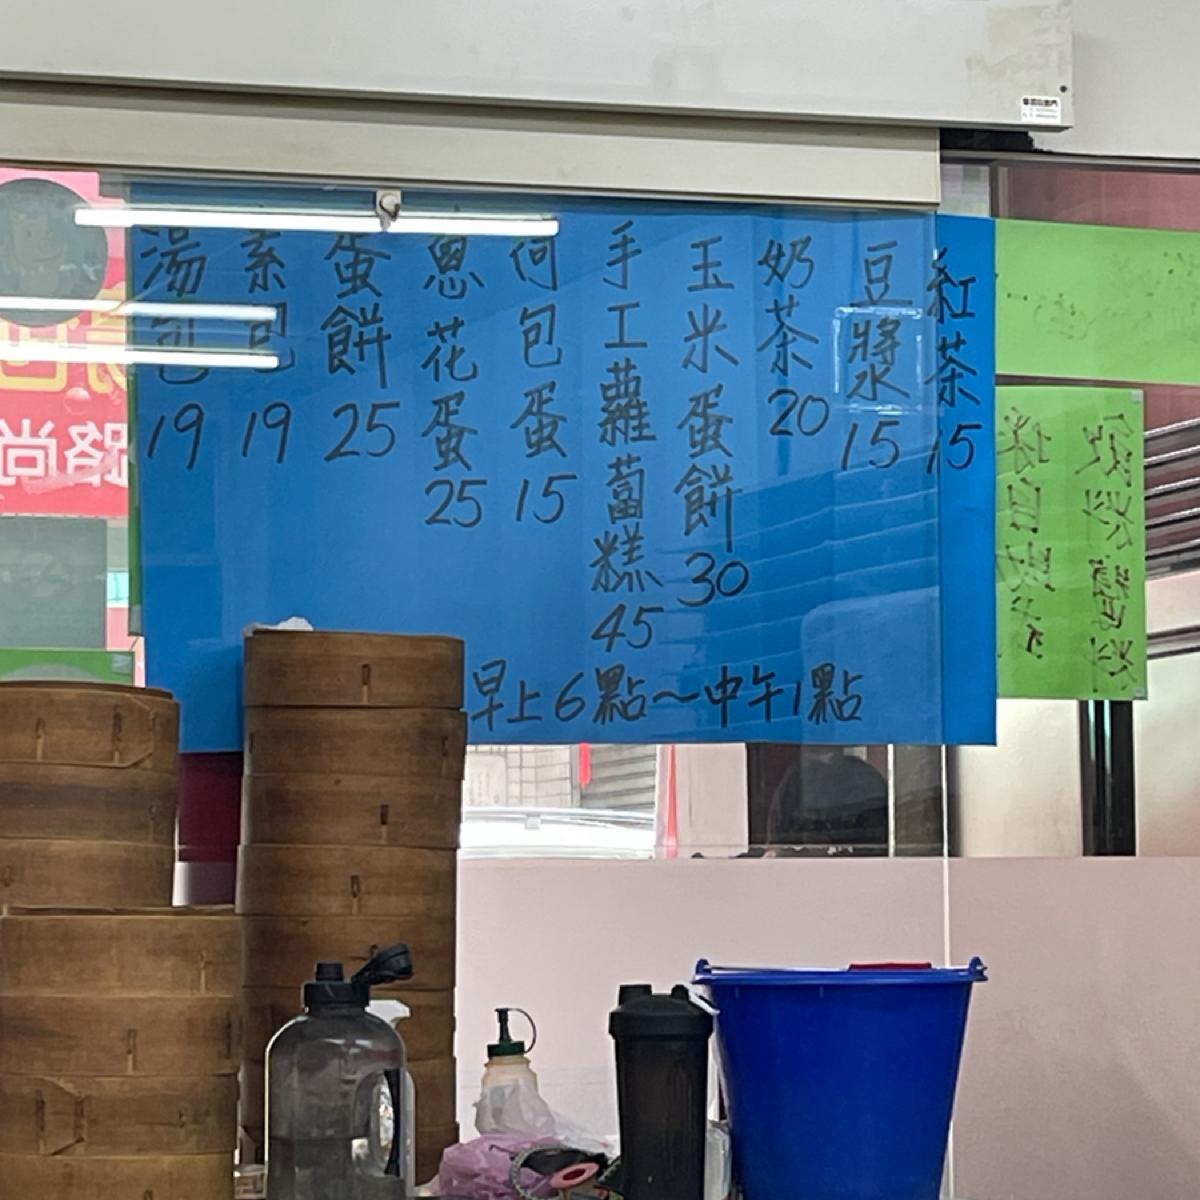 湯包 19
素包 19
蛋餅 25
蔥花蛋 25
荷包蛋 15
手工蘿蔔糕 45
玉米蛋餅 30
奶茶 20
豆漿 15
紅茶 15
早上6點～中午1點
飲料醬料
採自助式